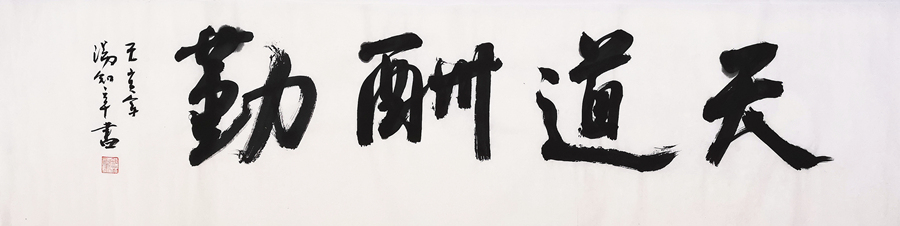 天道酬勤
壬寅年
湯知書